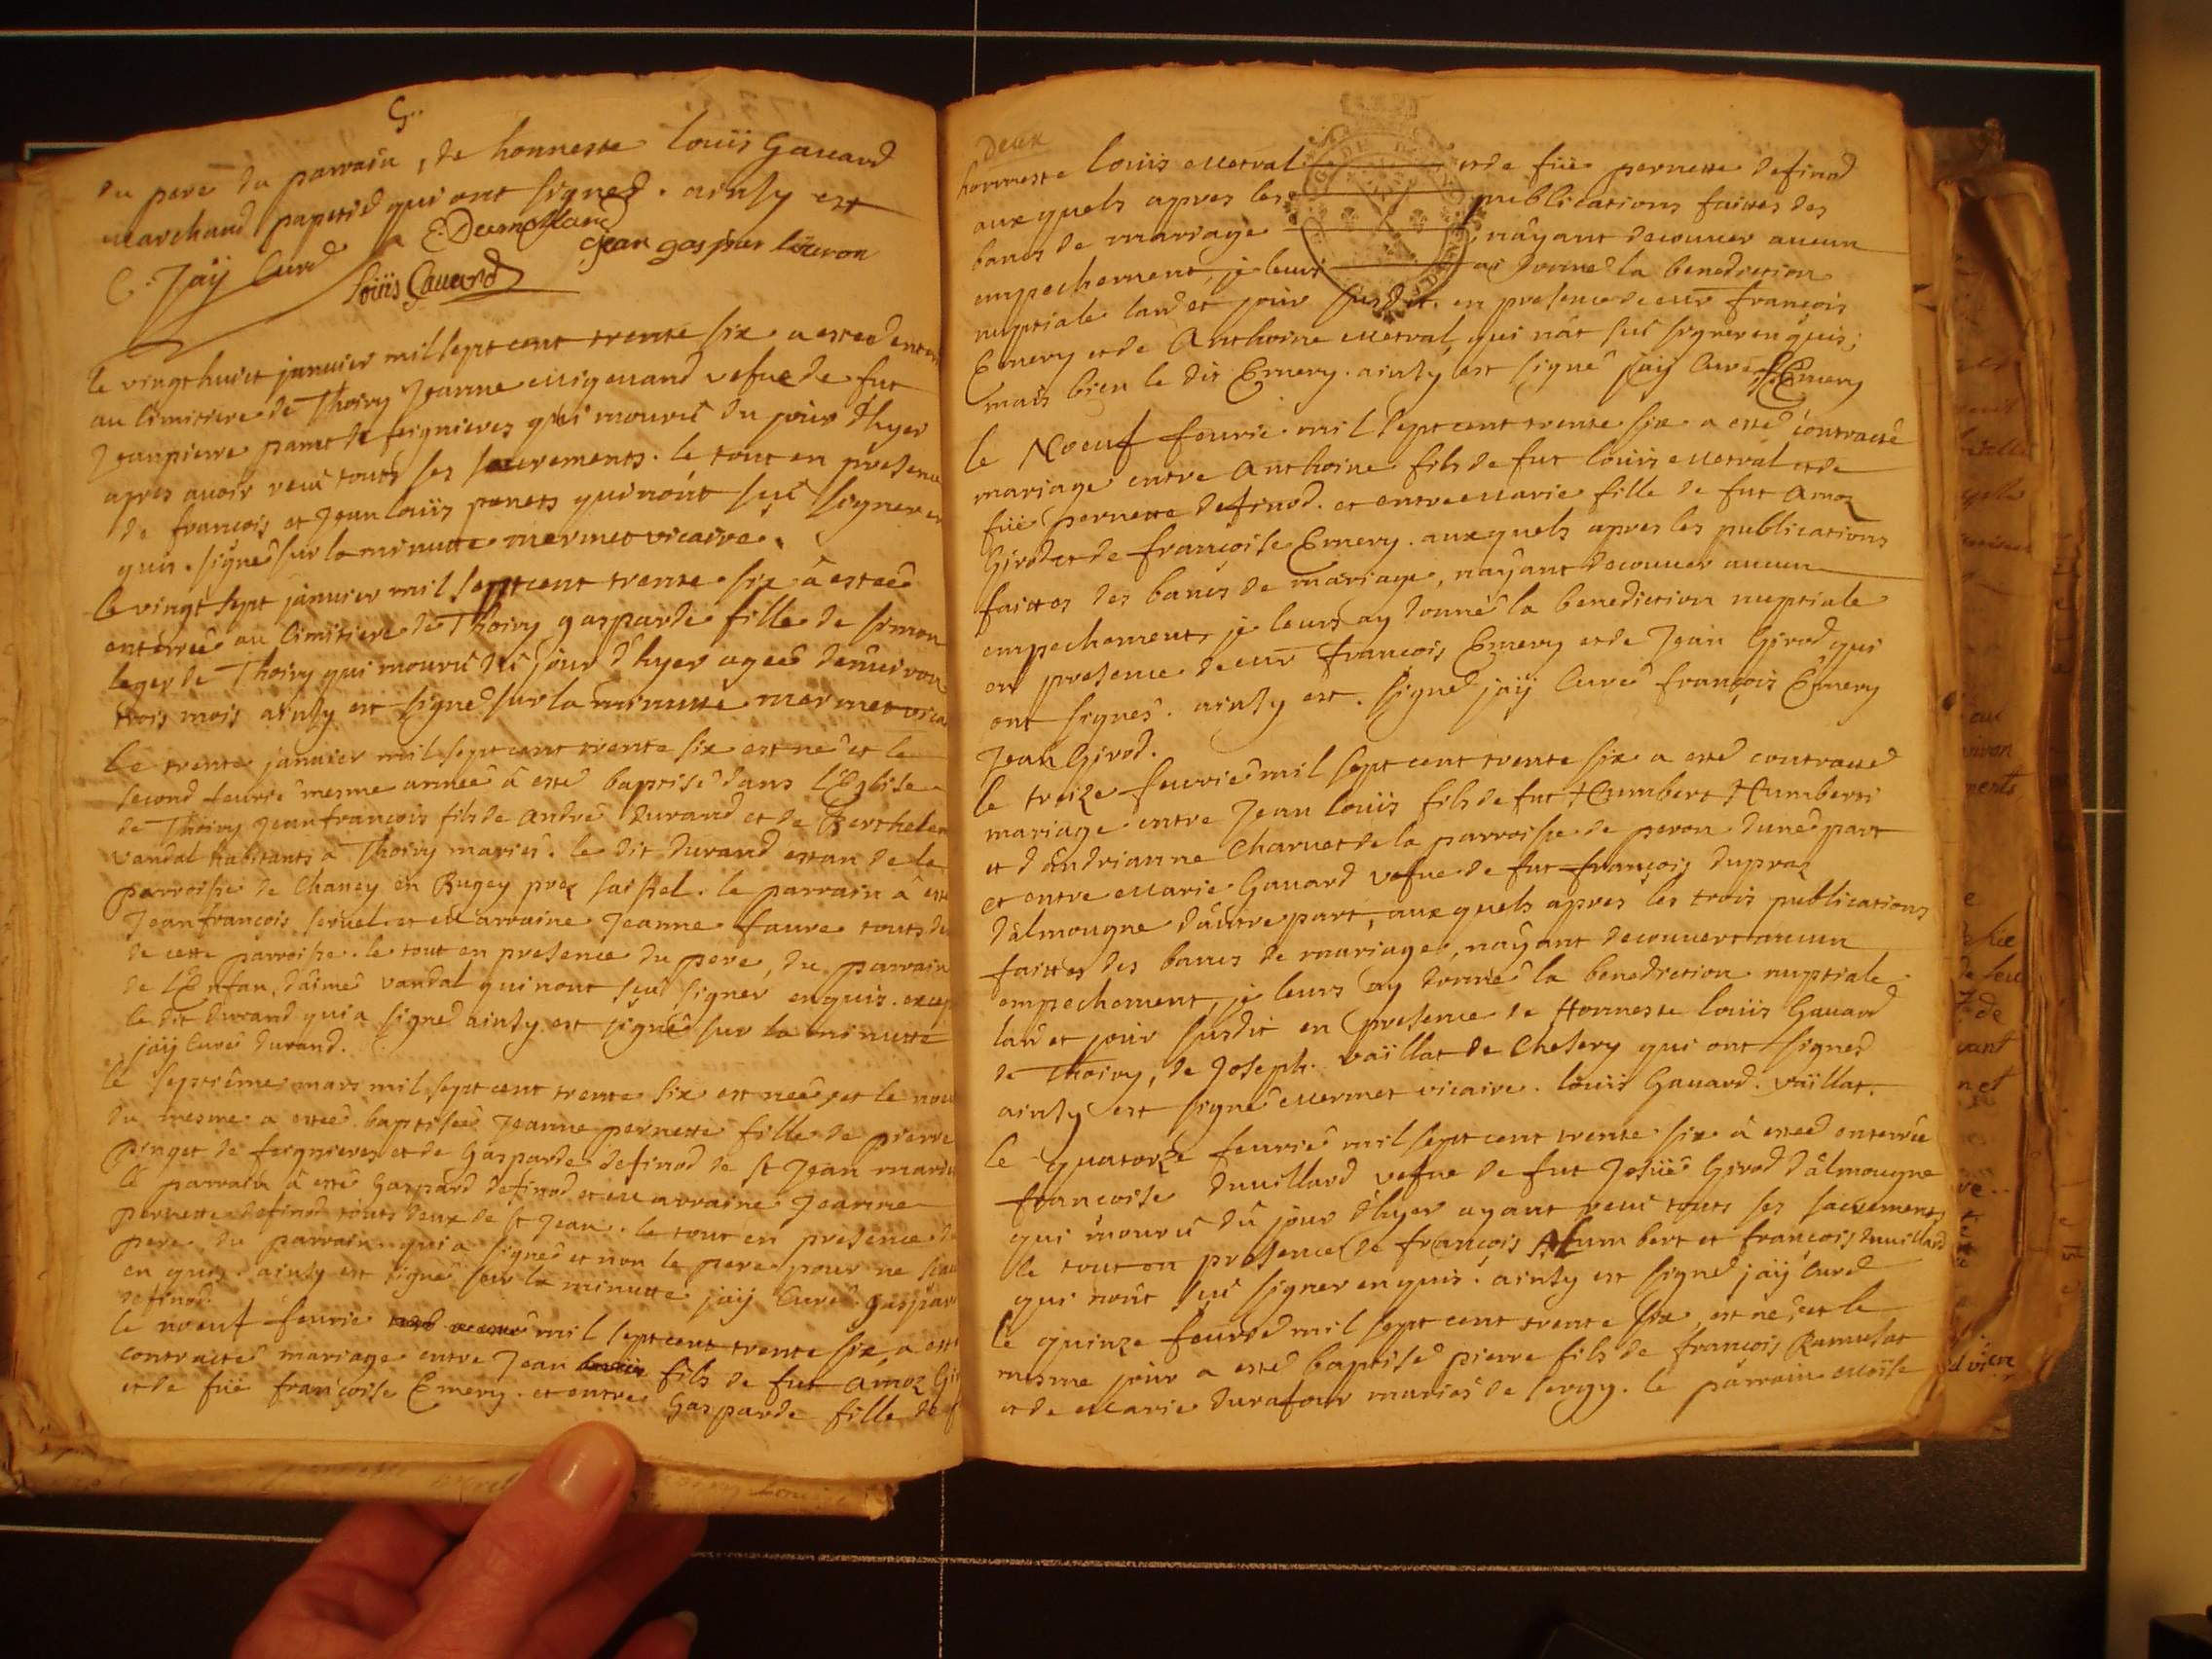 du pere du parrain, de honneste louïs Gauard
marchand papetié qui ont signed. ainsy est
C. Jaÿ Curé
louïs Gauard
jean gaspar
le vingt huict januier mil sept cent trente six a estee
au cimitiere de Thoiry Jeanne migeuand vefue de fut
Jeanpierre panet de feignieres qui mourut du jour d'hyer
apres auoir reeu touts ses sacrements. le tout en presence
de françois et Jean louïs panets qui n'ont sçu signer
quis. signé sur la minutte mermet vicaire.
le vingt sept januier mil sept cent trente six a estee
enterree au cimitiere de Thoiry gasparde fille de simon
leger de Thoiry qui mourut du jour d'hyer agee d'enuiron
trois mois ainsy est signé sur la minutte mermet
Le trente januier mil sept cent trente six est né et le
second feurié mesme année à esté baptisé dans l'Eglise
de Thoiry Jeanfrançois fils de André Durand et de
vandal habitants à Thoiry mariés. le dit Durand estan de la
parroisse de Chaney en Bugey prez saissel. le parrain à
Jeanfrançois seruel et marraine Jeanne faure touts
de cette parroisse. le tout en presence du pere, du parrain
de l'Enfan, d'aimé vandal qui nont sçu signer enquis.
le dit durand qui a signé ainsy est signé sur la minutte
jaÿ Curé durand.
le septième mars mil sept cent trente six est née et le
du mesme a estée baptisée Jeanne pernette fille de pierre
pinget de feignieres et de Gasparde definod de st Jean
le parrain à esté Gaspard definod et marraine Jeanne
pernette definod touts deux de st Jean. le tout en presence
pere, du parrain qui a signé et non le pere pour ne
en quis. ainsy est signé sur la minutte jaÿ Curé.
definod.
le noeuf feurie mil sept cent trente six a
contracté mariage entre Jean fils de fut amoz
et de füe françoise Emery. et entre Gasparde fille de
Deux
honneste louïs metral et de füe pernette definod
aux quels apres les publications faites des
bancs de mariage n'ayant decouuer aucun
empechement, je leurs ai donné la benediction
nuptiale lan et jour susdit. en presence de eur françois
Emery et de Anthoine metral, qui n'at sçu signer enquis;
mais bien le dit Emery. ainsy est signé jaÿ Curé Emery
le Noeuf feurie mil sept cent trente six a esté contracté
mariage entre Anthoine fils de fut louïs metral et de
füe pernette definod. et entre marie fille de fut Amoz
Girod et de françoise Emery. aux quels apres les publications
faittes des bancs de mariage, n'ayant decouuer aucun
empechement, je leurs ay donné la benediction nuptiale
en presence de eur françois Emery et de Jean Girod qui
ont signés. ainsy est. signé jaÿ Curé françois Emery
Jean Girod.
le treize feurié mil sept cent trente six a esté contracté
mariage entre Jean louïs fils de fut Humbert Humberti
et d'andrianne Charuet de la parroisse de peron dune part
et entre marie Gauard vefue de fut françois dupraz
d'almougne d'autre part, aux quels apres les trois publications
faittes des bancs de mariage, n'ayant decouuert aucun
empechement, je leurs ay donné la benediction nuptiale
lan et jour susdit en presence de Honneste louïs Gauard
de Thoiry, de Joseph vaillat de Chesery qui ont signed
ainsy est signé mermet vicaire. louis Gauard. vaïllat.
le quatorze feurié mil sept cent trente six à estee enterrée
françoise duuillard vefue de fut Josué Girod d'almougne
qui mourut du jour d'hyer ayant reeu touts ses sacrements
le tout en presence de françois Humbert et françois duuillard
qui n'ont sçu signer enquis. ainsy est signé jaÿ Curé
le quinze feurié mil sept cent trente six est né et le
mesme jour a esté baptisé pierre fils de françois Ramusat
et de marie durafour mariés de sergy. le parrain moïse